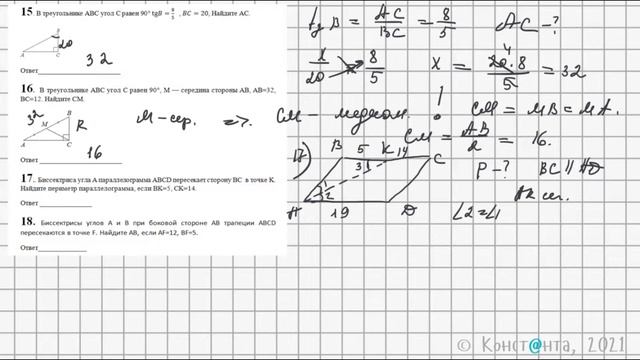 15. В треугольнике ABC угол C равен 90° tgB = 8/5 , BC = 20, Найдите AC.
B
20
A
C
32
Ответ
16. В треугольнике ABC угол C равен 90°, M — середина стороны AB, AB=32,
BC=12. Найдите CM.
32
B
M
A
C
16
Ответ
17. Биссектриса угла A параллелограмма ABCD пересекает сторону BC в точке K.
Найдите периметр параллелограмма, если BK=5, CK=14.
Ответ
18. Биссектрисы углов A и B при боковой стороне AB трапеции ABCD
пересекаются в точке F. Найдите AB, если AF=12, BF=5.
Ответ
tg B = AC/BC = 8/5 AC - ?
x/20 = 8/5 x = 20·8/5 = 32
4
M - сер. => CM - медиан. !
CM = MB = MA.
CM = AB/2 = 16.
17) B 5 K 14 C
3
1
2
A 19 D
P - ? BC || AD
AK сек.
∠2 = ∠1
© Конст@нта, 2021